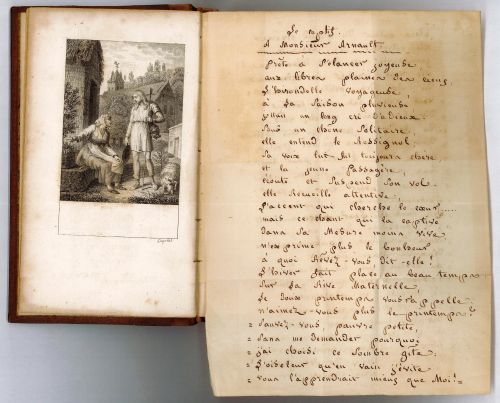 Le captif.
A Monsieur Arnault.
Prête à s'élancer joyeuse
aux libres plaines des cieux,
L'hirondelle voyageuse,
à la saison pluvieuse
jettait un long cri d'adieux.
Sous un chêne Solitaire
elle entend le Rossignol
Sa voix lui fut toujours chère
et la jeune Passagère,
écoute et Suspend Son vol.
elle Recueille attentive
L'accent qui cherche le cœur....
mais ce chant qui la captive
dans Sa Mesure moins vive
n'exprime plus le bonheur
à quoi Rêvez-vous, dit-elle!
L'hiver fait place au beau temps
Sur la Rive Maternelle
Le Doux printemps vous rappelle,
n'aimez-vous plus le printemps?
= Sauvez-vous, pauvre petite,
= Sans me demander pourquoi
= j'ai choisi ce Sombre gîte:
= L'oiseleur qu'en vain j'évite
= vous l'apprendrait mieux que Moi!=